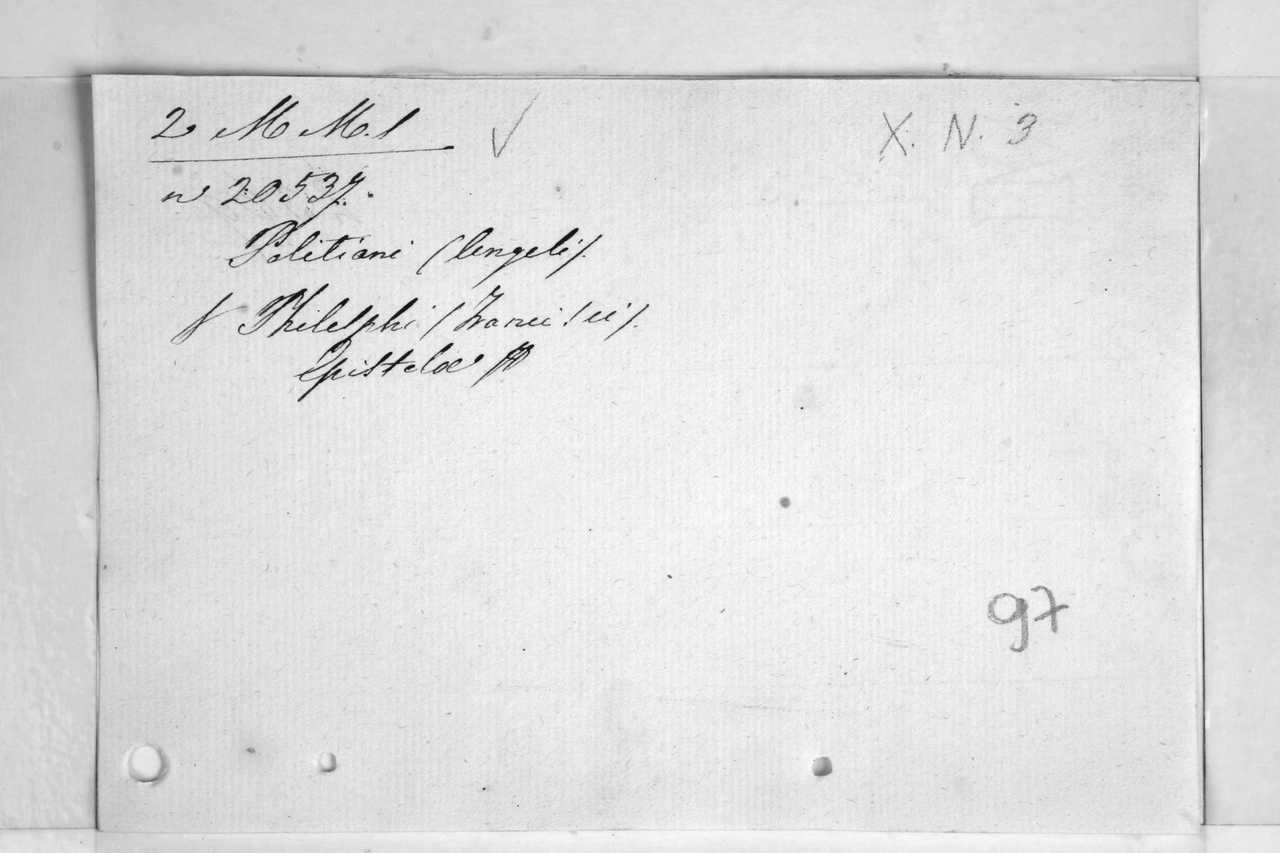 2 M M. 1 ✓ X. N. 3
n 20537.
Politiani (Angeli).
f Philelphi (Francisci).
Epistolæ
97